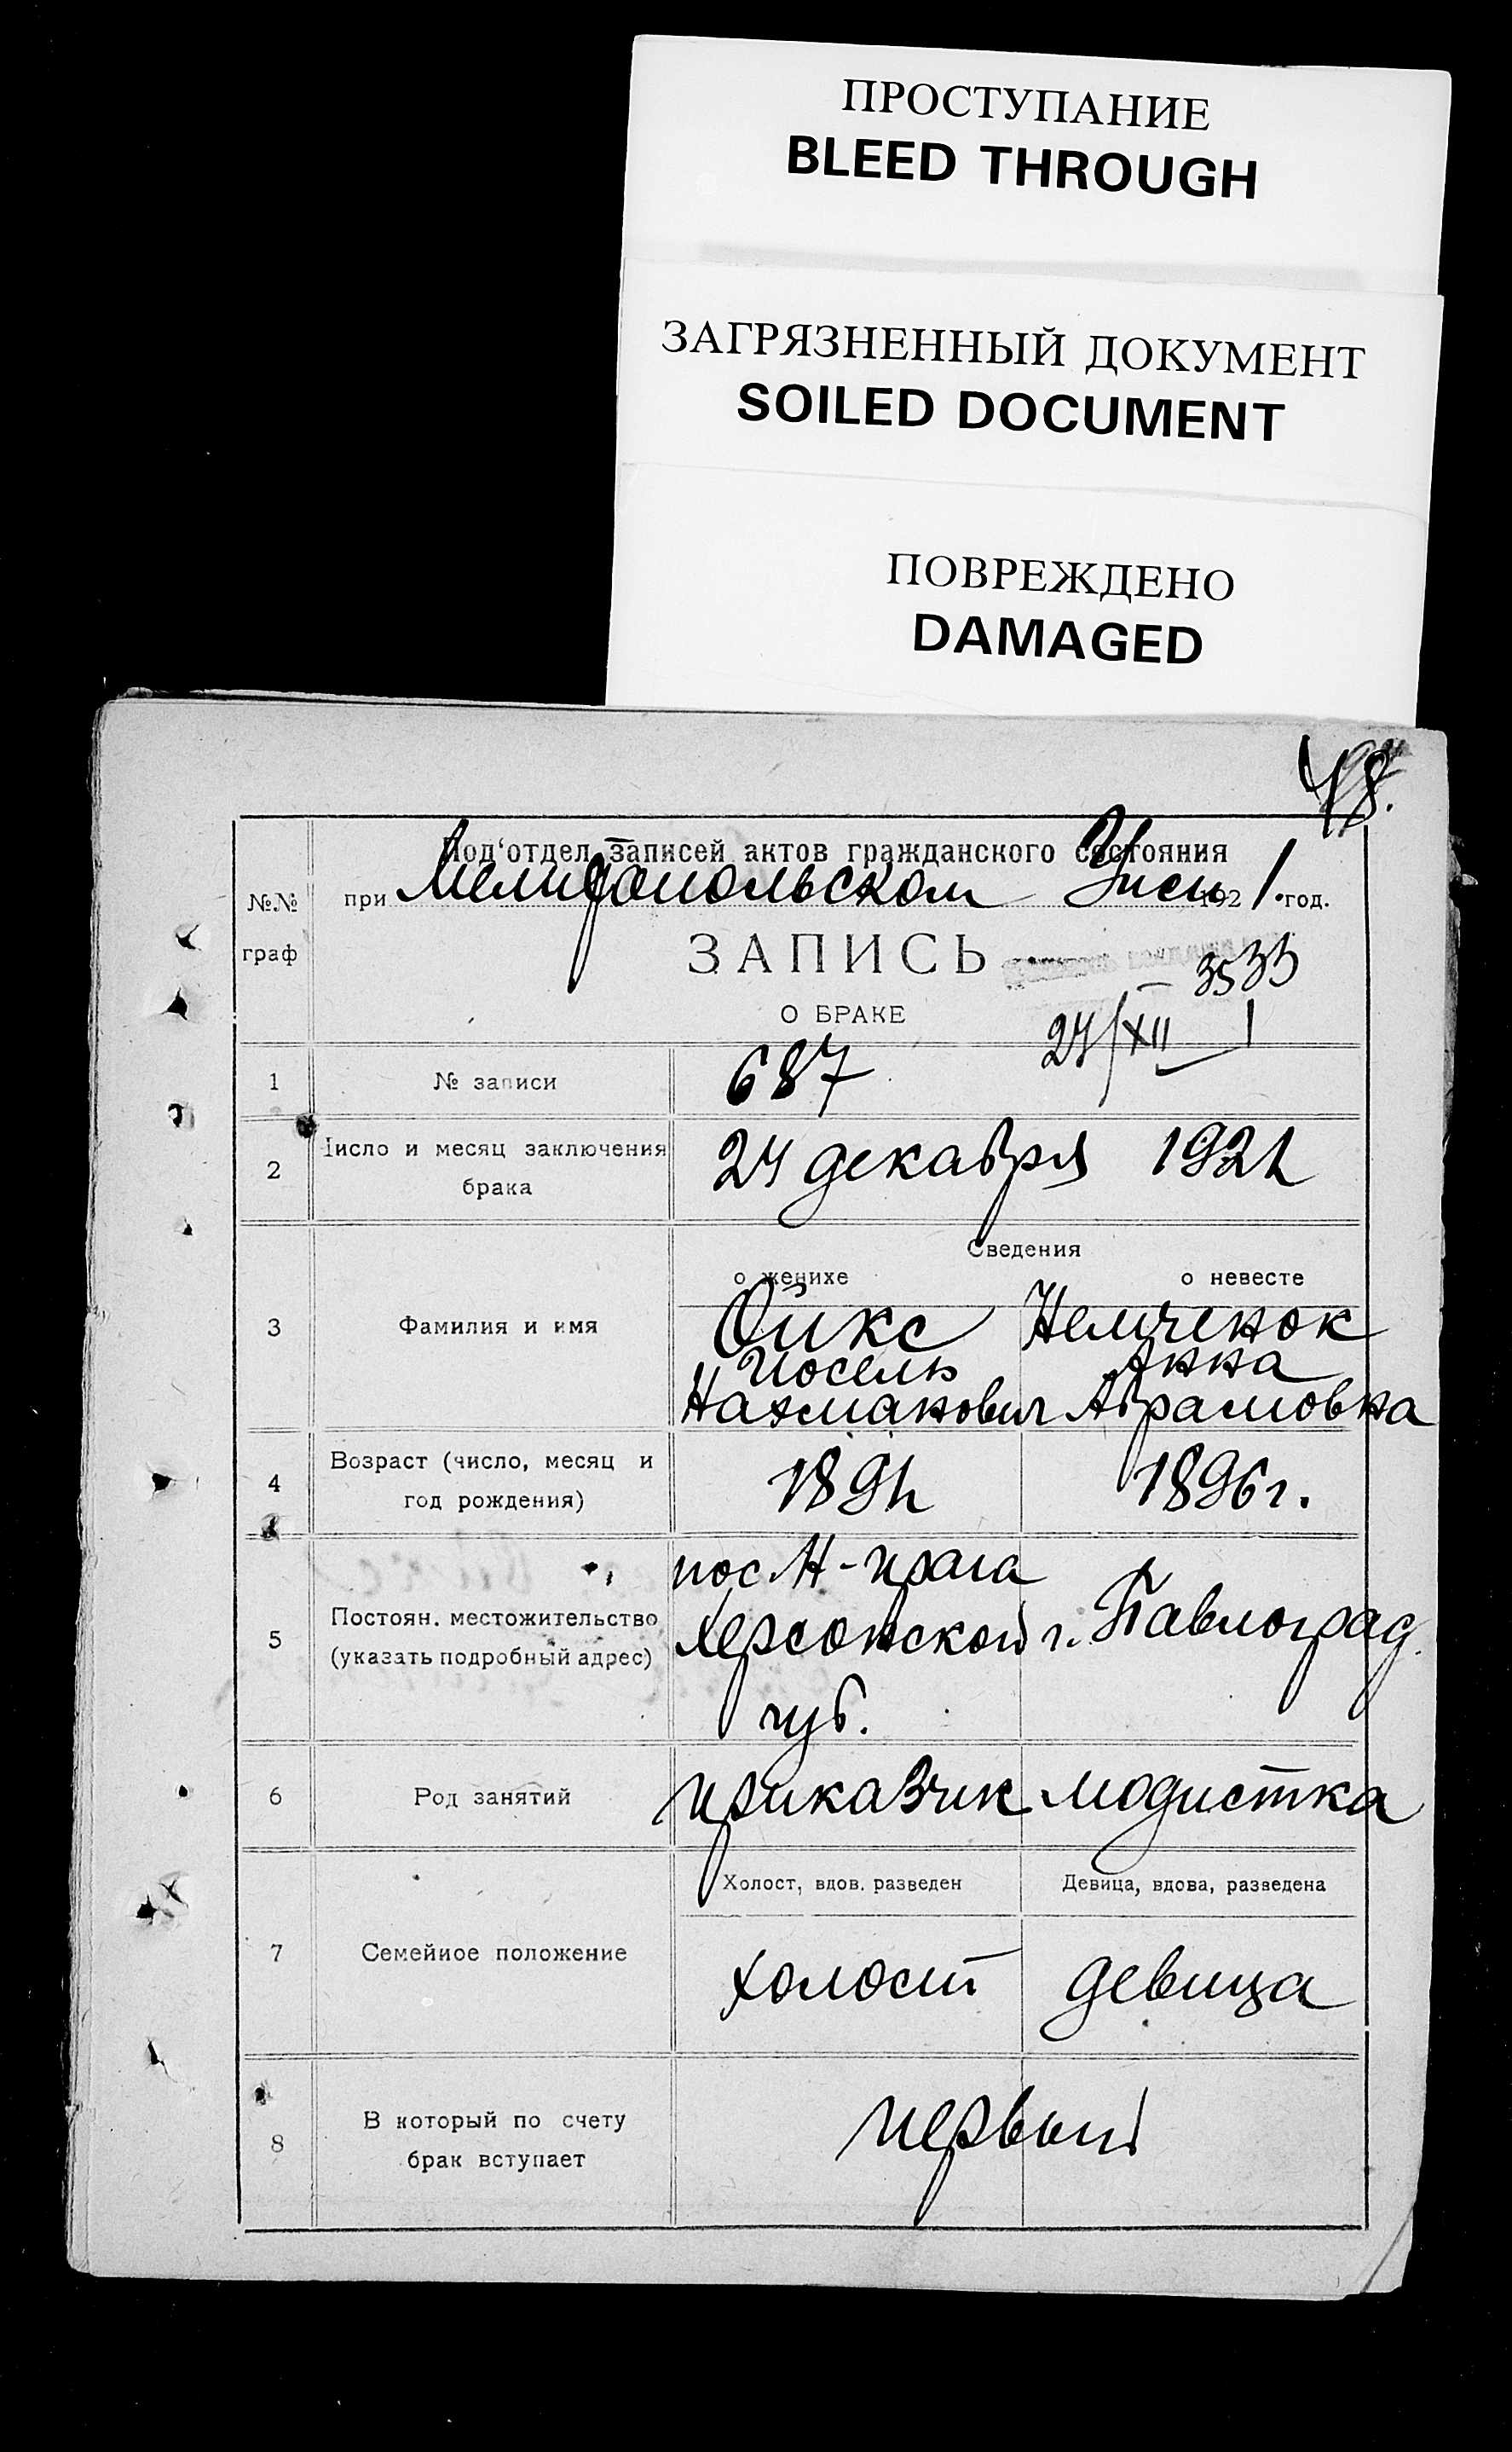 ПРОСТУПАНИЕ
BLEED THROUGH
ЗАГРЯЗНЕННЫЙ ДОКУМЕНТ
SOILED DOCUMENT
ПОВРЕЖДЕНО
DAMAGED
48.
Под'отдел записей актов гражданского состояния
при Мелитопольском 1921. год.
№№
граф
ЗАПИСЬ
3533
О БРАКЕ
24/XII 1
1 № записи 687
2 Число и месяц заключения
брака
24 декабря 1921
Сведения
о женихе о невесте
3 Фамилия и имя
Фикс Немченок
Иосель Анна
Нахманович Абрамовна
4 Возраст (число, месяц и
год рождения)
189 1896 г.
5 Постоян. местожительство
(указать подробный адрес)
пос. Н-Прага
Херсонской
губ.
г. Павлоград.
6 Род занятий приказчик модистка
Холост, вдов. разведен Девица, вдова, разведена
7 Семейное положение холост девица
8 В который по счету
брак вступает
первый